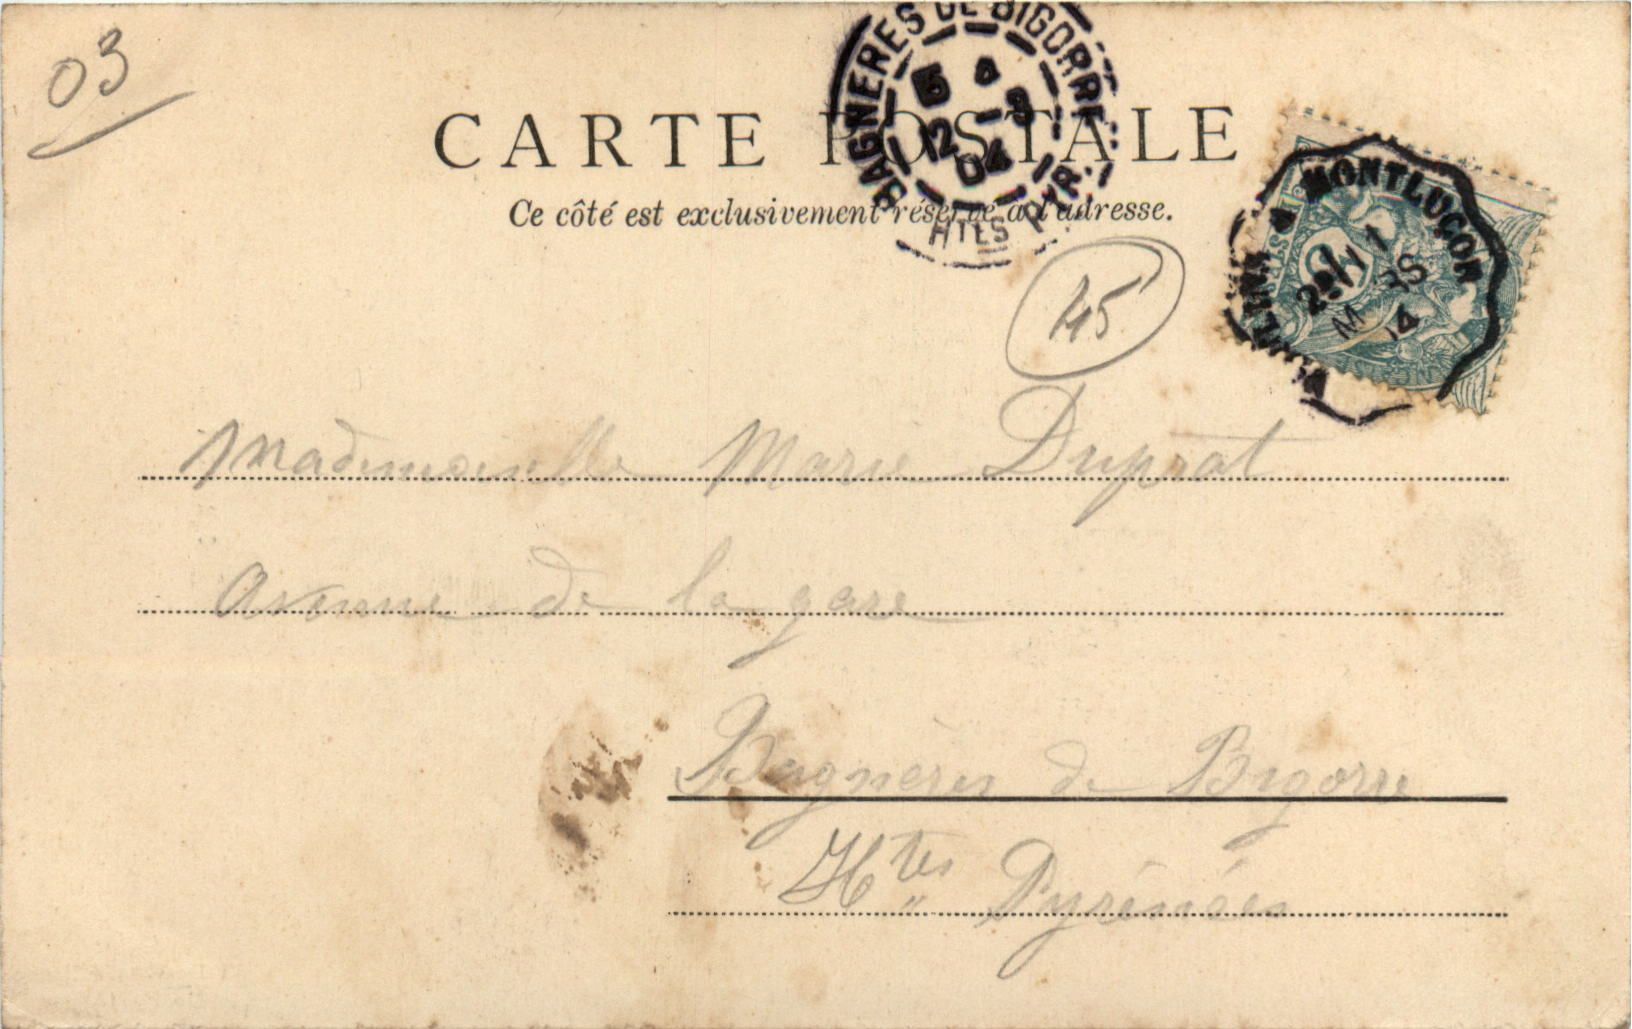 03
CARTE POSTALE
Ce côté est exclusivement réservé à l'adresse.
BAGNERES DE BIGORRE
5 4
12 3
04
HTES PYR.
À MONTLUÇON
MARS
04
45
Mademoiselle Marie Duprat
Avenue de la gare
Bagnères de Bigorre
Htes Pyrénées